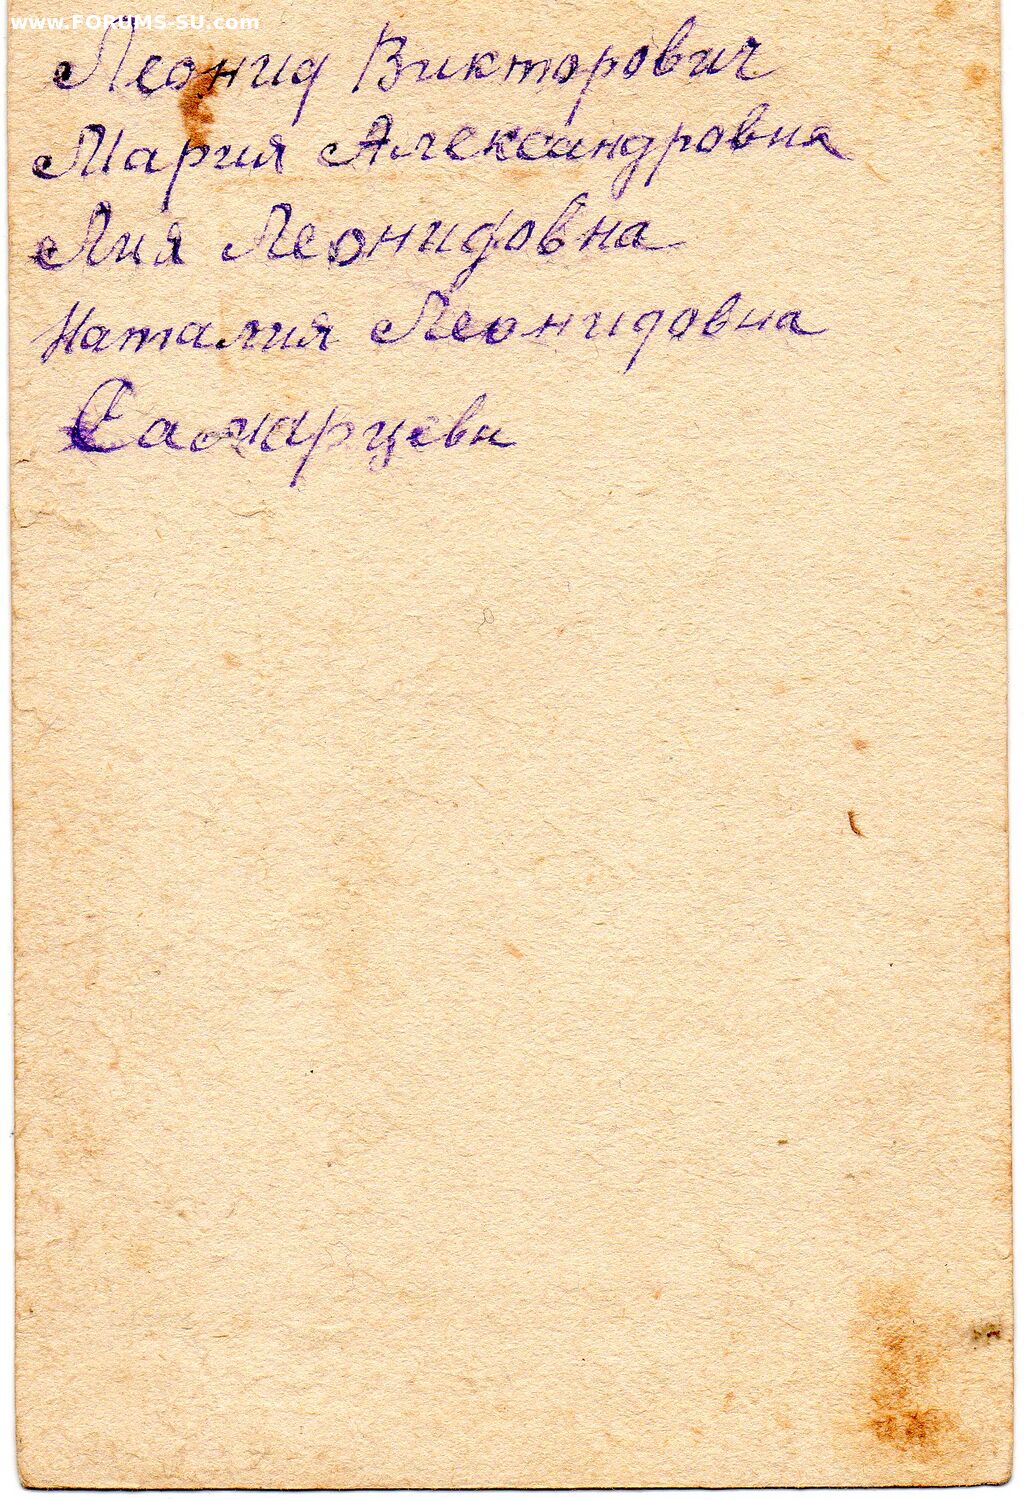 www.FORUMS-SU.com
Леонид Викторович
Мария Александровна
Лия Леонидовна
Наталия Леонидовна
Самарцевы